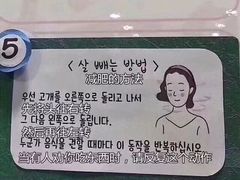 5
< 살 빼는 방법 >
减肥的方法
우선 고개를 오른쪽으로 돌리고 나서
先将头往右转
그 다음 왼쪽으로 돌립니다.
然后再往左转
누군가 음식을 권할 때마다 이 동작을 반복하십시오
当有人劝你吃东西时，请反复这个动作